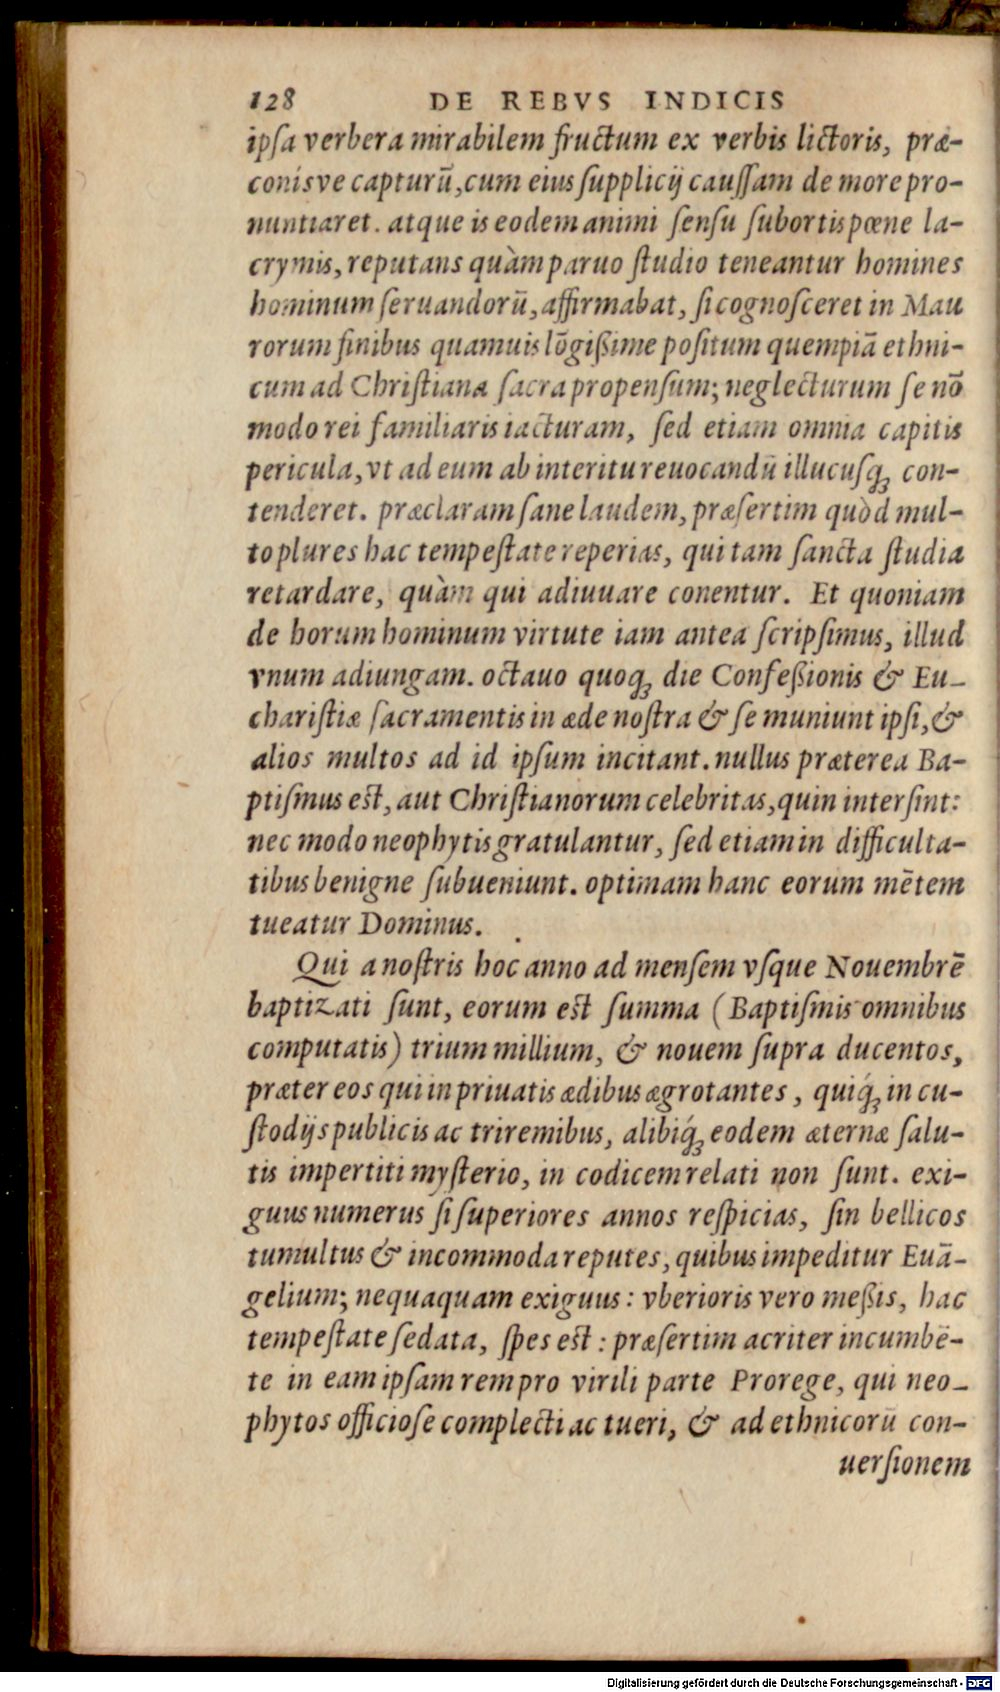 128 DE REBVS INDICIS
ipſa verbera mirabilem fructum ex verbis lictoris, præ-
conisve capturū, cum eius ſupplicij cauſſam de more pro-
nuntiaret. atque is eodem animi ſenſu ſubortis pœne la-
crymis, reputans quàm paruo ſtudio teneantur homines
hominum ſeruandorū, affirmabat, ſi cognoſceret in Mau
rorum finibus quamuis lōgißime poſitum quempiā ethni-
cum ad Chriſtiana ſacra propenſum; neglecturum ſe nō
modo rei familiaris iacturam, ſed etiam omnia capitis
pericula, vt ad eum ab interitu reuocandū illucuſq; con-
tenderet. præclaram ſane laudem, præſertim quòd mul-
to plures hac tempeſtate reperias, qui tam ſancta ſtudia
retardare, quàm qui adiuuare conentur. Et quoniam
de horum hominum virtute iam antea ſcripſimus, illud
vnum adiungam. octauo quoq; die Confeßionis & Eu-
chariſtiæ ſacramentis in æde noſtra & ſe muniunt ipſi, &
alios multos ad id ipſum incitant. nullus præterea Ba-
ptiſmus eſt, aut Chriſtianorum celebritas, quin interſint:
nec modo neophytis gratulantur, ſed etiam in difficulta-
tibus benigne ſubueniunt. optimam hanc eorum mētem
tueatur Dominus.
Qui a noſtris hoc anno ad menſem vſque Nouembrē
baptizati ſunt, eorum eſt ſumma (Baptiſmis omnibus
computatis) trium millium, & nouem ſupra ducentos,
præter eos qui in priuatis ædibus ægrotantes, quiq́; in cu-
ſtodijs publicis ac triremibus, alibiq́; eodem æternæ ſalu-
tis impertiti myſterio, in codicem relati non ſunt. exi-
guus numerus ſi ſuperiores annos reſpicias, ſin bellicos
tumultus & incommoda reputes, quibus impeditur Euā-
gelium; nequaquam exiguus: vberioris vero meßis, hac
tempeſtate ſedata, ſpes eſt: præſertim acriter incumbē-
te in eam ipſam rem pro virili parte Prorege, qui neo-
phytos officioſe complecti ac tueri, & ad ethnicorū con-
uerſionem
Digitalisierung gefördert durch die Deutsche Forschungsgemeinschaft - DFG